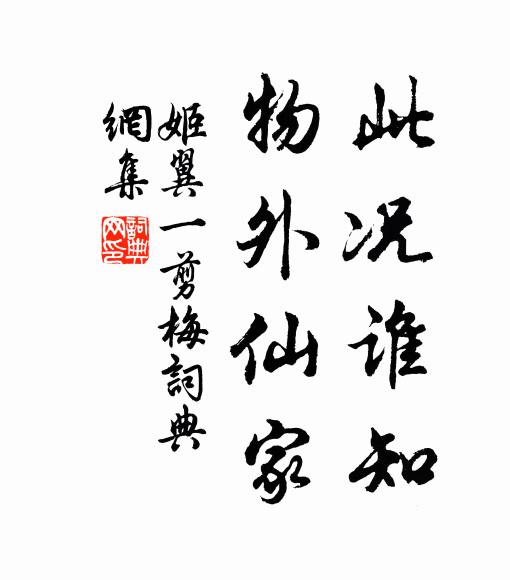 此况谁知
物外仙家
姬翼一剪梅詞典
網集
詞典
网印